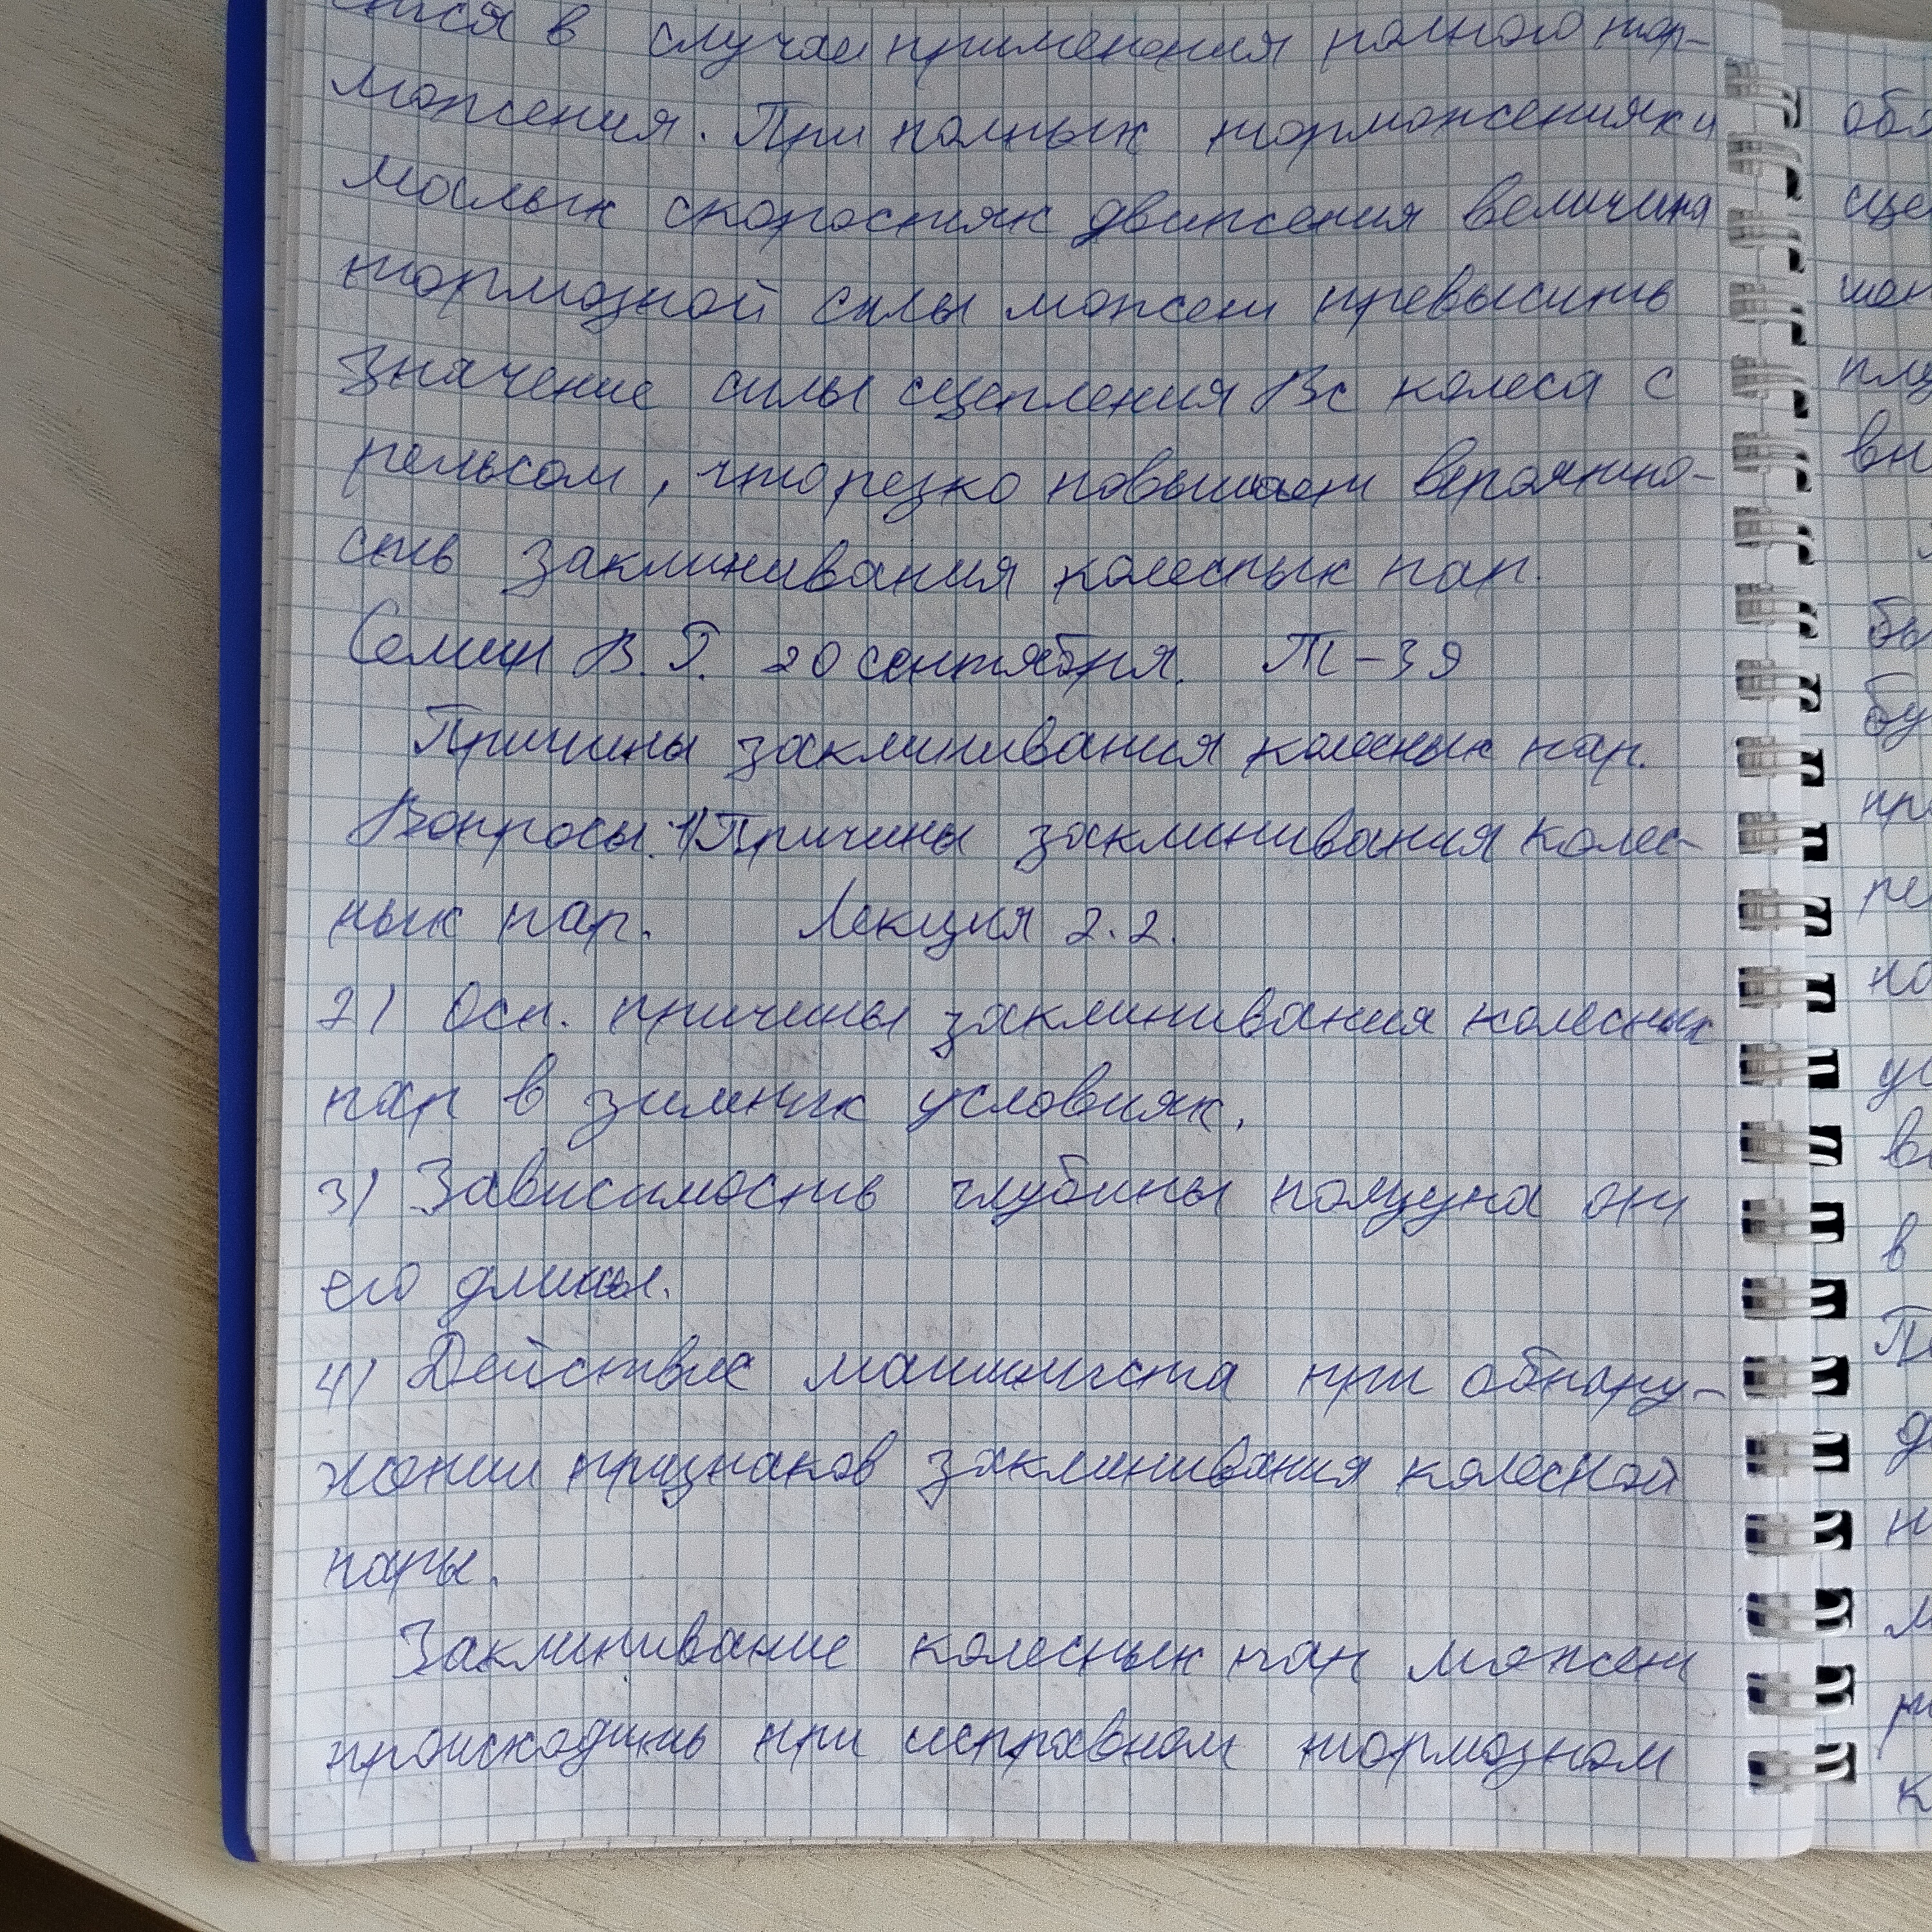 ется в случае применения полного тор-
можения. При полных торможениях и
малых скоростях движения величина
тормозной силы может превысить
значение силы сцепления Вс колеса с
рельсом, что резко повышает вероятно-
сть заклинивания колесных пар.
Семин В. Г. 20 сентября. Т-39
Причины заклинивания колесных пар.
Вопросы. 1) Причины заклинивания колес-
ных пар. Лекция 2.2.
2) Осн. причины заклинивания колесных
пар в зимних условиях.
3) Зависимость глубины ползуна от
его длины.
4) Действие машиниста при обнару-
жении признаков заклинивания колесной
пары.
Заклинивание колесных пар может
происходить при исправном тормозном